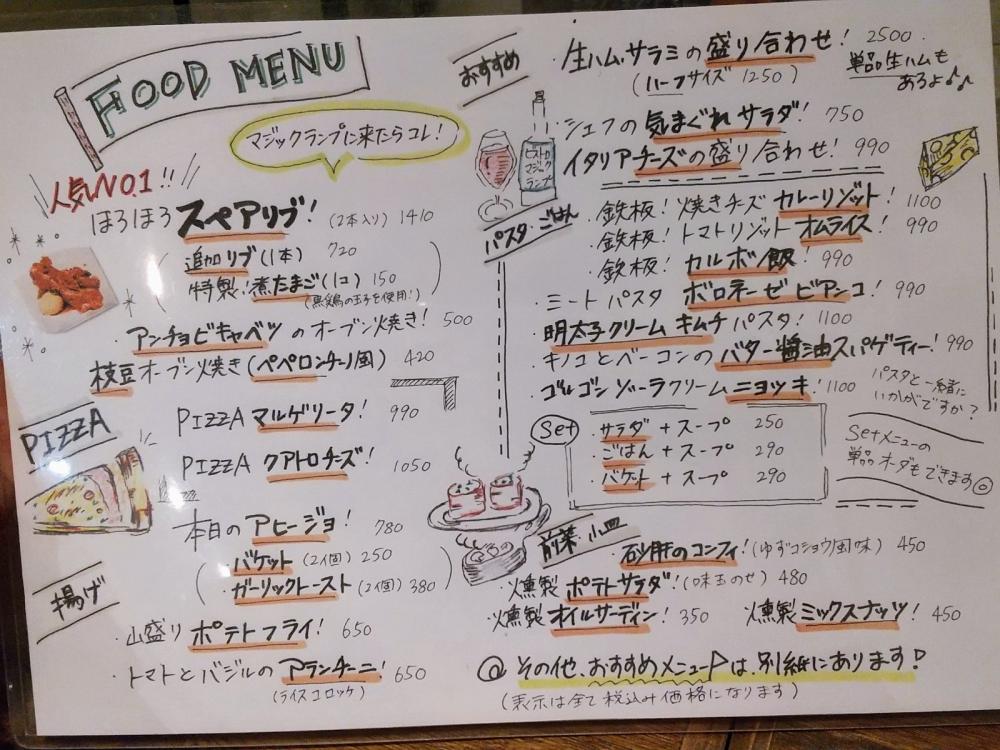 FOOD MENU
マジックランプに来たらコレ!
人気NO.1!!
ほろほろ スペアリブ! (2本入り) 1410
追加リブ(1本) 720
特製!煮たまご(1コ) 150
(黒鶏の玉子を使用!)
アンチョビキャベツ のオーブン焼き! 500
枝豆オーブン焼き(ペペロンチーノ風) 420
PIZZA
PIZZA マルゲリータ! 990
PIZZA クアトロチーズ! 1050
本日の アヒージョ! 780
バケット (2個) 250
ガーリックトースト (2個) 380
揚げ
・山盛り ポテトフライ! 650
・トマトとバジルの アランチーニ! 650
(ライスコロッケ)
おすすめ
・生ハム、サラミの盛り合わせ! 2500
(ハーフサイズ 1250)
単品生ハムも
あるよ♪♪
・シェフの 気まぐれサラダ! 750
・イタリアチーズの盛り合わせ! 990
ビストロ
マジック
ランプ
パスタ・ごはん
・鉄板!焼きチーズ カレーリゾット! 1100
・鉄板!トマトリゾット オムライス! 990
・鉄板! カルボ飯! 990
・ミートパスタ ボロネーゼビアンコ! 990
・明太子クリームキムチパスタ! 1100
・キノコとベーコンの バター醤油スパゲティー! 990
・ゴルゴンゾーラクリームニョッキ! 1100
パスタと一緒に
いかがですか?
Set
・サラダ + スープ 250
・ごはん + スープ 290
・バケット + スープ 290
Setメニューの
単品オーダもできます◎
前菜・小皿
・砂肝のコンフィ!(ゆずコショウ風味) 450
・燻製 ポテトサラダ!(味玉のせ) 480
・燻製 オイルサーディン! 350
燻製ミックスナッツ! 450
@ その他、おすすめメニューは、別紙にあります!
(表示は全て税込み価格になります)